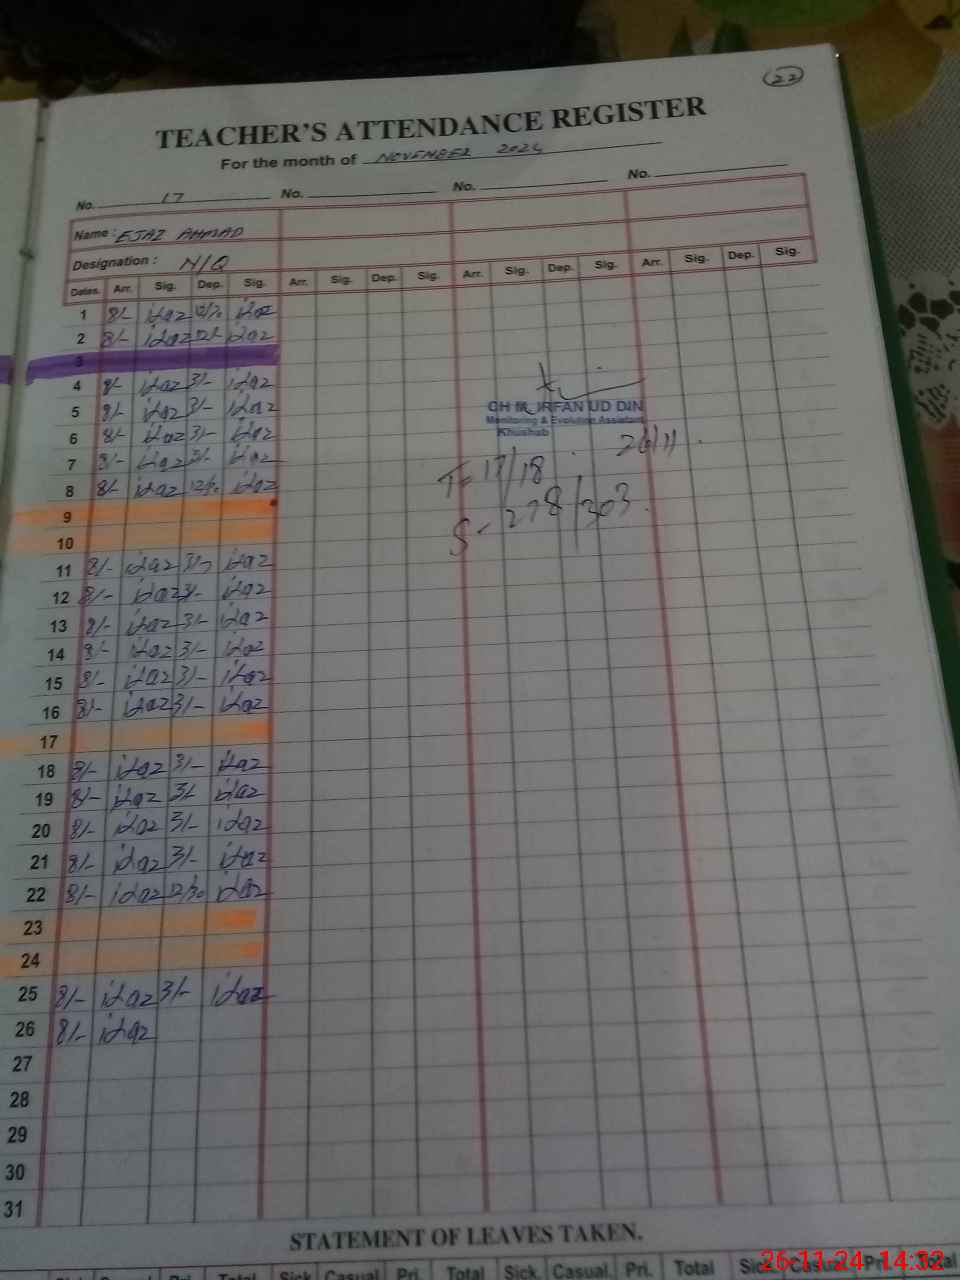 22
TEACHER'S ATTENDANCE REGISTER
For the month of NOVEMBER 2024
No. 17 No. No. No.
Name : EJAZ AHMAD
Designation : N/Q
Dates. Arr. Sig. Dep. Sig. Arr. Sig. Dep. Sig. Arr. Sig. Dep. Sig. Arr. Sig. Dep. Sig.
1 8/- ijaz 12/30 ijaz
2 8/- ijaz 12/- ijaz
3
4 8/- ijaz 3/- ijaz
5 8/- ijaz 3/- ijaz
6 8/- ijaz 3/- ijaz
7 8/- ijaz 3/- ijaz
8 8/- ijaz 12/30 ijaz
9
10
11 8/- ijaz 3/- ijaz
12 8/- ijaz 3/- ijaz
13 8/- ijaz 3/- ijaz
14 8/- ijaz 3/- ijaz
15 8/- ijaz 3/- ijaz
16 8/- ijaz 3/- ijaz
17
18 8/- ijaz 3/- ijaz
19 8/- ijaz 3/- ijaz
20 8/- ijaz 3/- ijaz
21 8/- ijaz 3/- ijaz
22 8/- ijaz 12/30 ijaz
23
24
25 8/- ijaz 3/- ijaz
26 8/- ijaz
27
28
29
30
31
CH M. IRFAN UD DIN
Monitoring & Evolution Assistant
Khushab
26/11
T= 17/18
S- 278/303
STATEMENT OF LEAVES TAKEN.
Sick Casual Pri. Total Sick Casual Pri. Total Sick. Casual. Pri. Total Sick Casual Pri. Total
26-11-24 14:32